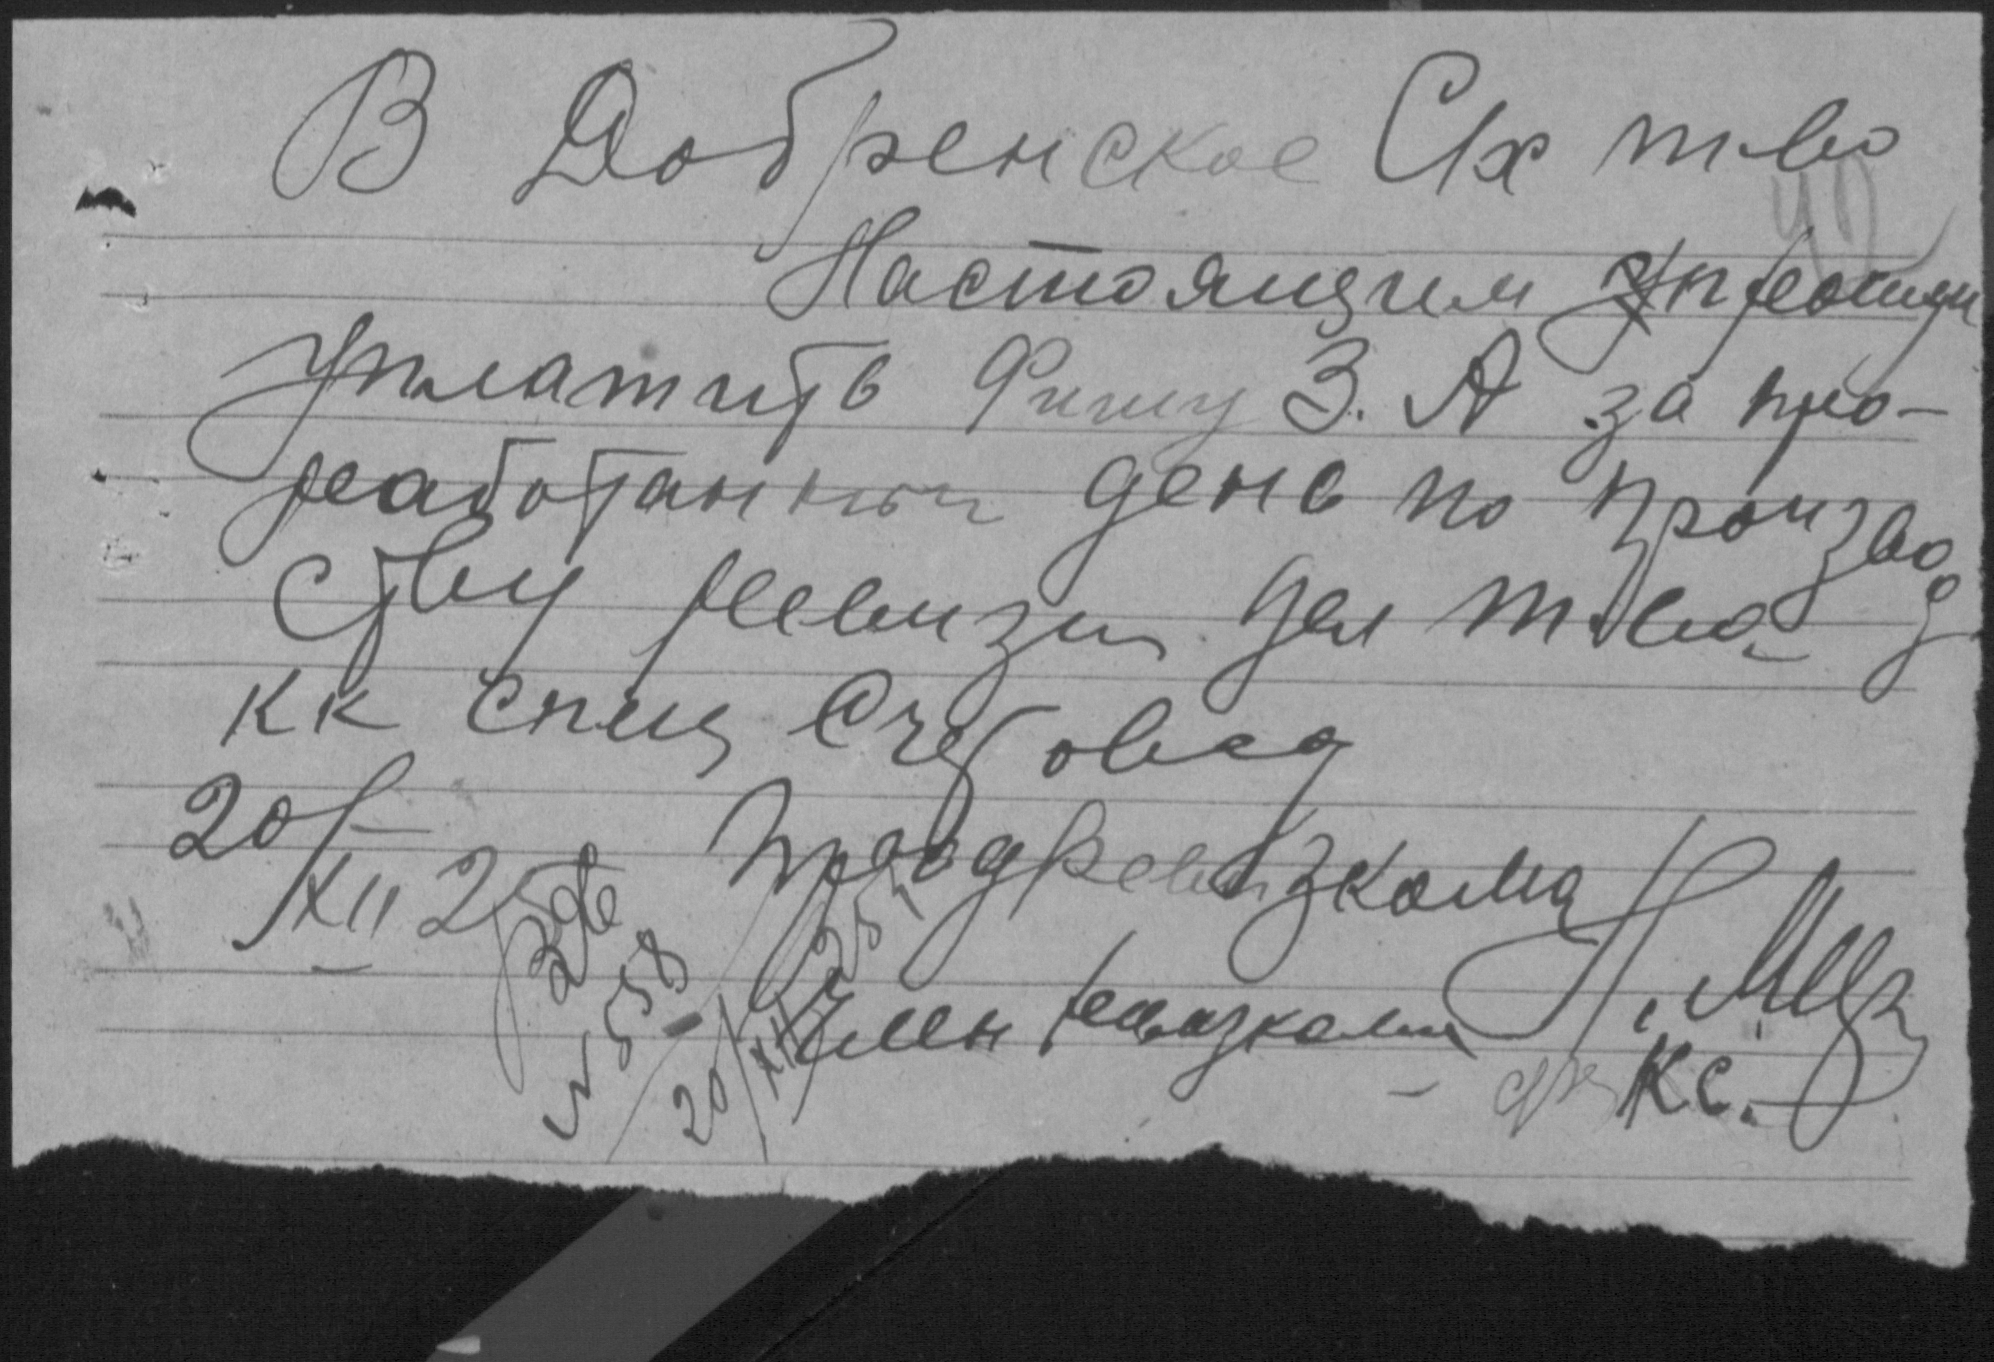 В Добренское С/х т-во
Настоящим просим
уплатить Финку З. А за про-
работанный день по производ
ству ревизии дел т-ва
кк спец счетовод
20/XII 25
Предревизкома
Член ревизкома
№ 558
20/XII 25